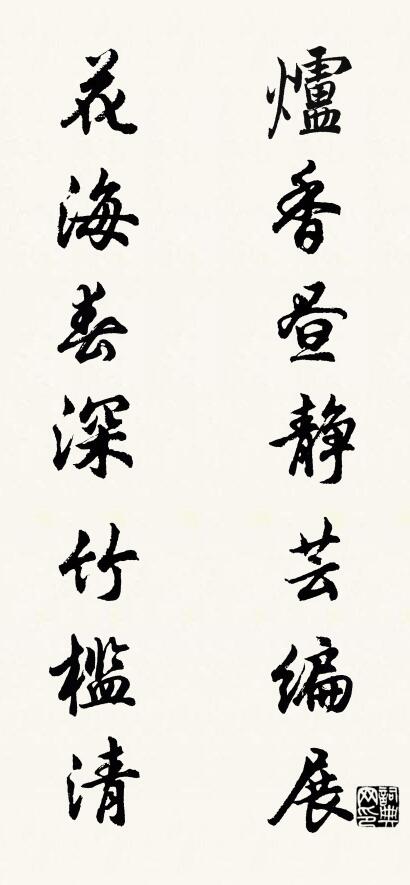 爐香晝靜芸編展
花海春深竹檻清
詞典网印